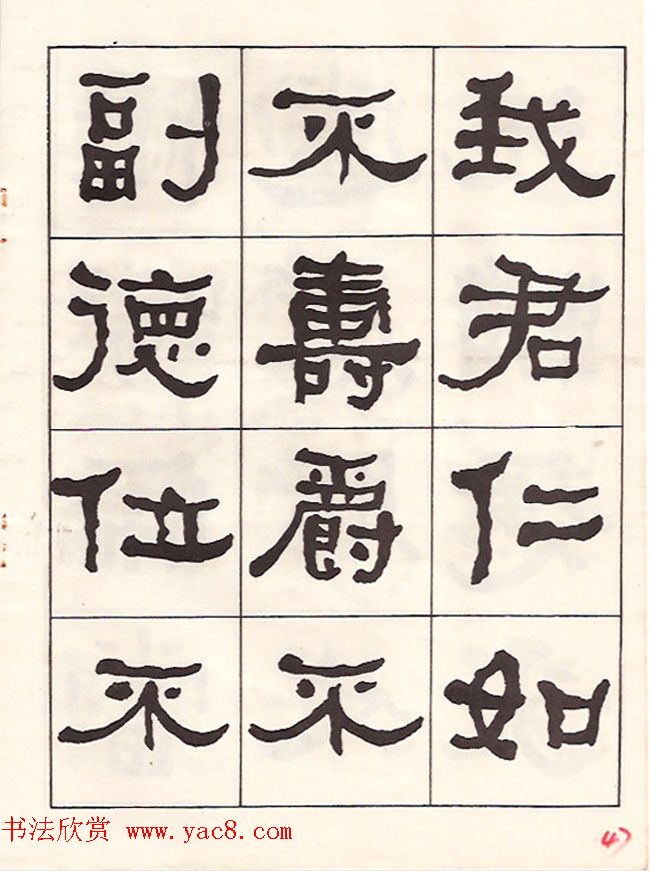 我君仁如
不壽爵不
副德位不
书法欣赏 www.yac8.com
47